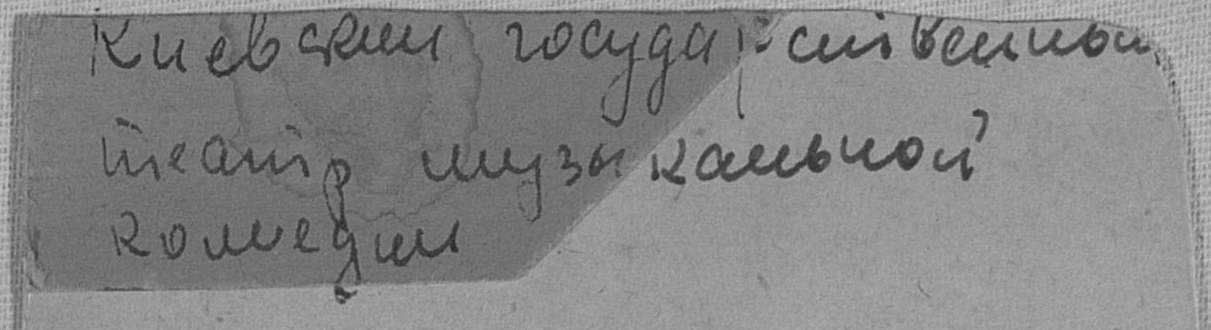 Киевский государственный
театр музыкальной
комедии